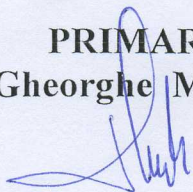 PRIMAR
Gheorghe M